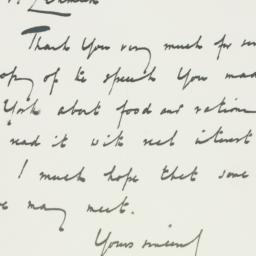 Thank you very much for
copy of the speech you mad
York about food and ration
read it with real interest
I much hope that some
we may meet.
Yours sincerel